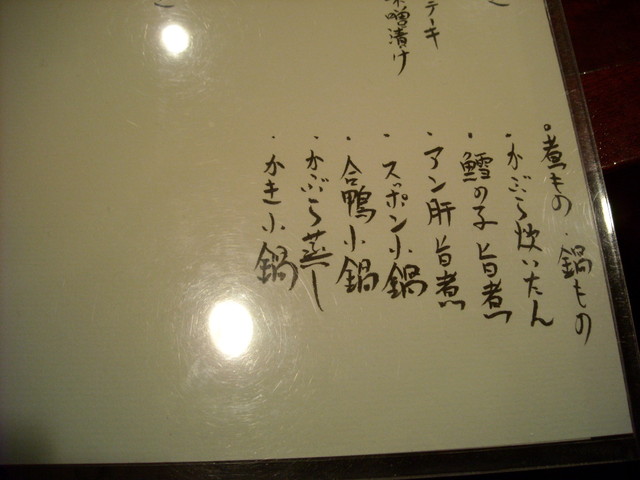 テーキ
味噌漬け
煮もの・鍋もの
・かぶら炊いたん
・鱈の子旨煮
・アン肝旨煮
・スッポン小鍋
・合鴨小鍋
・かぶら蒸し
・かき小鍋